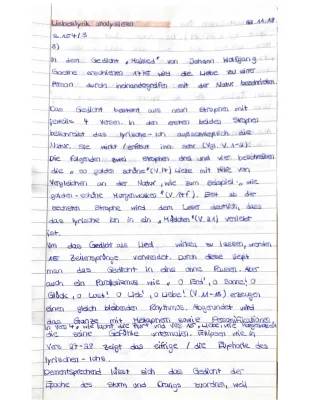 Liebeslyrik analysieren
S. 157/3
3)
In dem Gedicht „Mailied“ von Johann Wolfgang
Goethe erschienen 1775 wird die Liebe zu einer
Person durch mit der Natur beschrieben.
Das Gedicht besteht aus neun Strophen mit
jeweils 4 Versen. In den ersten beiden Strophen
beschreibt das lyrische-Ich ausschließlich die
Natur, sie wirkt
Die folgenden zwei Strophen drei und vier beschreiben
die „so golden schöne“ (V.14) Liebe mit Hilfe von
Vergleichen an der Natur, wie zum Beispiel „wie
golden-schöne Morgenwolken“ Erst ab der
Strophe wird dem Leser deutlich, dass
das lyrische Ich in ein „Mädchen“ (V.21) verliebt
ist.
Um das Gedicht als Lied wirken zu lassen, werden
15 Zeilensprünge verwendet. Durch diese liest
man das Gedicht in eine ohne Pausen. Aber
auch ein Parallelismus wie „O Erd', O Sonne! O
Glück, O Lust! O Lieb', O Liebe! (V.11-13) erzeugen
einen gleich bleibenden Rhythmus. Abgerundet wird
das Ganze mit Metaphern sowie Personifikationen,
die seine Gefühle
Vers 27-28 zeigt das eifrige / die Euphorie des
lyrischen-Ichs.
Dementsprechend lässt sich das Gedicht der
Epoche des Sturm und Drangs zuordnen, weil